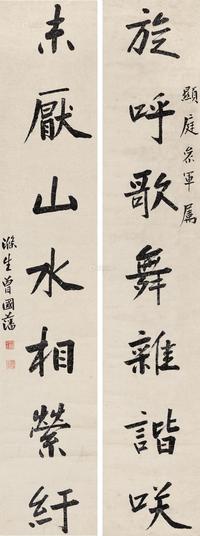 顯庭叅軍屬
旋呼歌舞雜諧咲
未厭山水相縈紆
滌生曾國藩